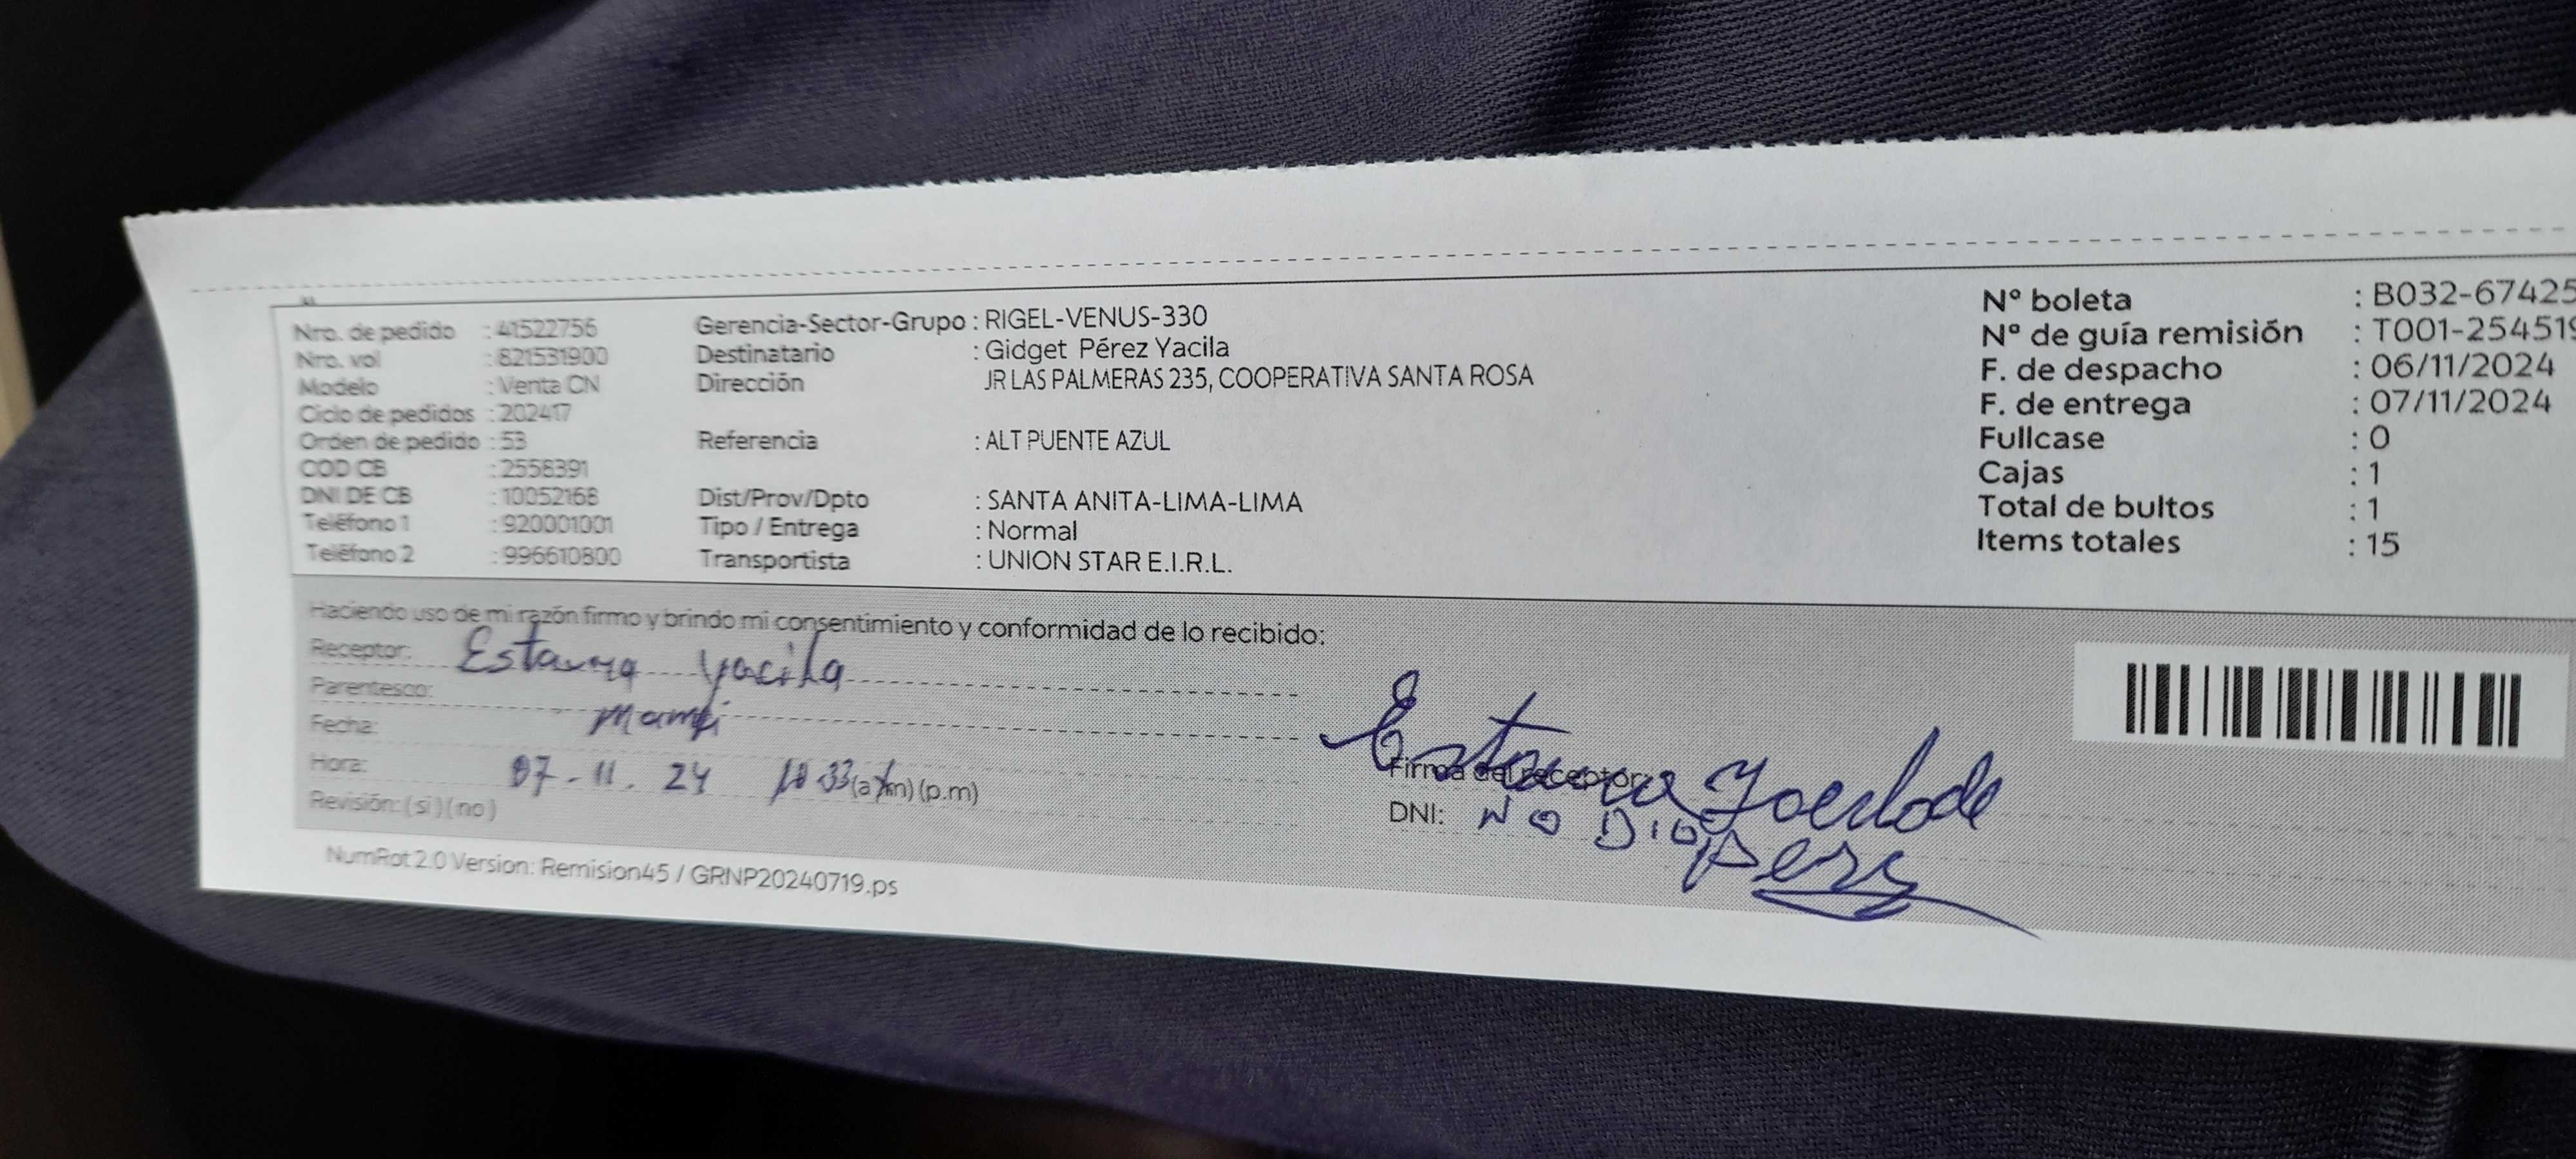 Nro. de pedido : 41522756
Nro. vol : 821531900
Modelo : Venta CN
Ciclo de pedidos : 202417
Orden de pedido : 53
COD CB : 2558391
DNI DE CB : 10052168
Teléfono 1 : 920001001
Teléfono 2 : 996610800
Gerencia-Sector-Grupo : RIGEL-VENUS-330
Destinatario : Gidget Pérez Yacila
Dirección JR LAS PALMERAS 235, COOPERATIVA SANTA ROSA
Referencia : ALT PUENTE AZUL
Dist/Prov/Dpto : SANTA ANITA-LIMA-LIMA
Tipo / Entrega : Normal
Transportista : UNION STAR E.I.R.L.
Nº boleta : B032-67425
Nº de guía remisión : T001-254519
F. de despacho : 06/11/2024
F. de entrega : 07/11/2024
Fullcase : 0
Cajas : 1
Total de bultos : 1
Items totales : 15
Haciendo uso de mi razón firmo y brindo mi consentimiento y conformidad de lo recibido:
Receptor: Yacila
Parentesco:
Fecha:
Hora: 07-11. 24 (a.m) (p.m)
Revisión: (si) (no)
Firma del receptor:
DNI: NO DIO
NumRot 2.0 Version: Remision45 / GRNP20240719.ps